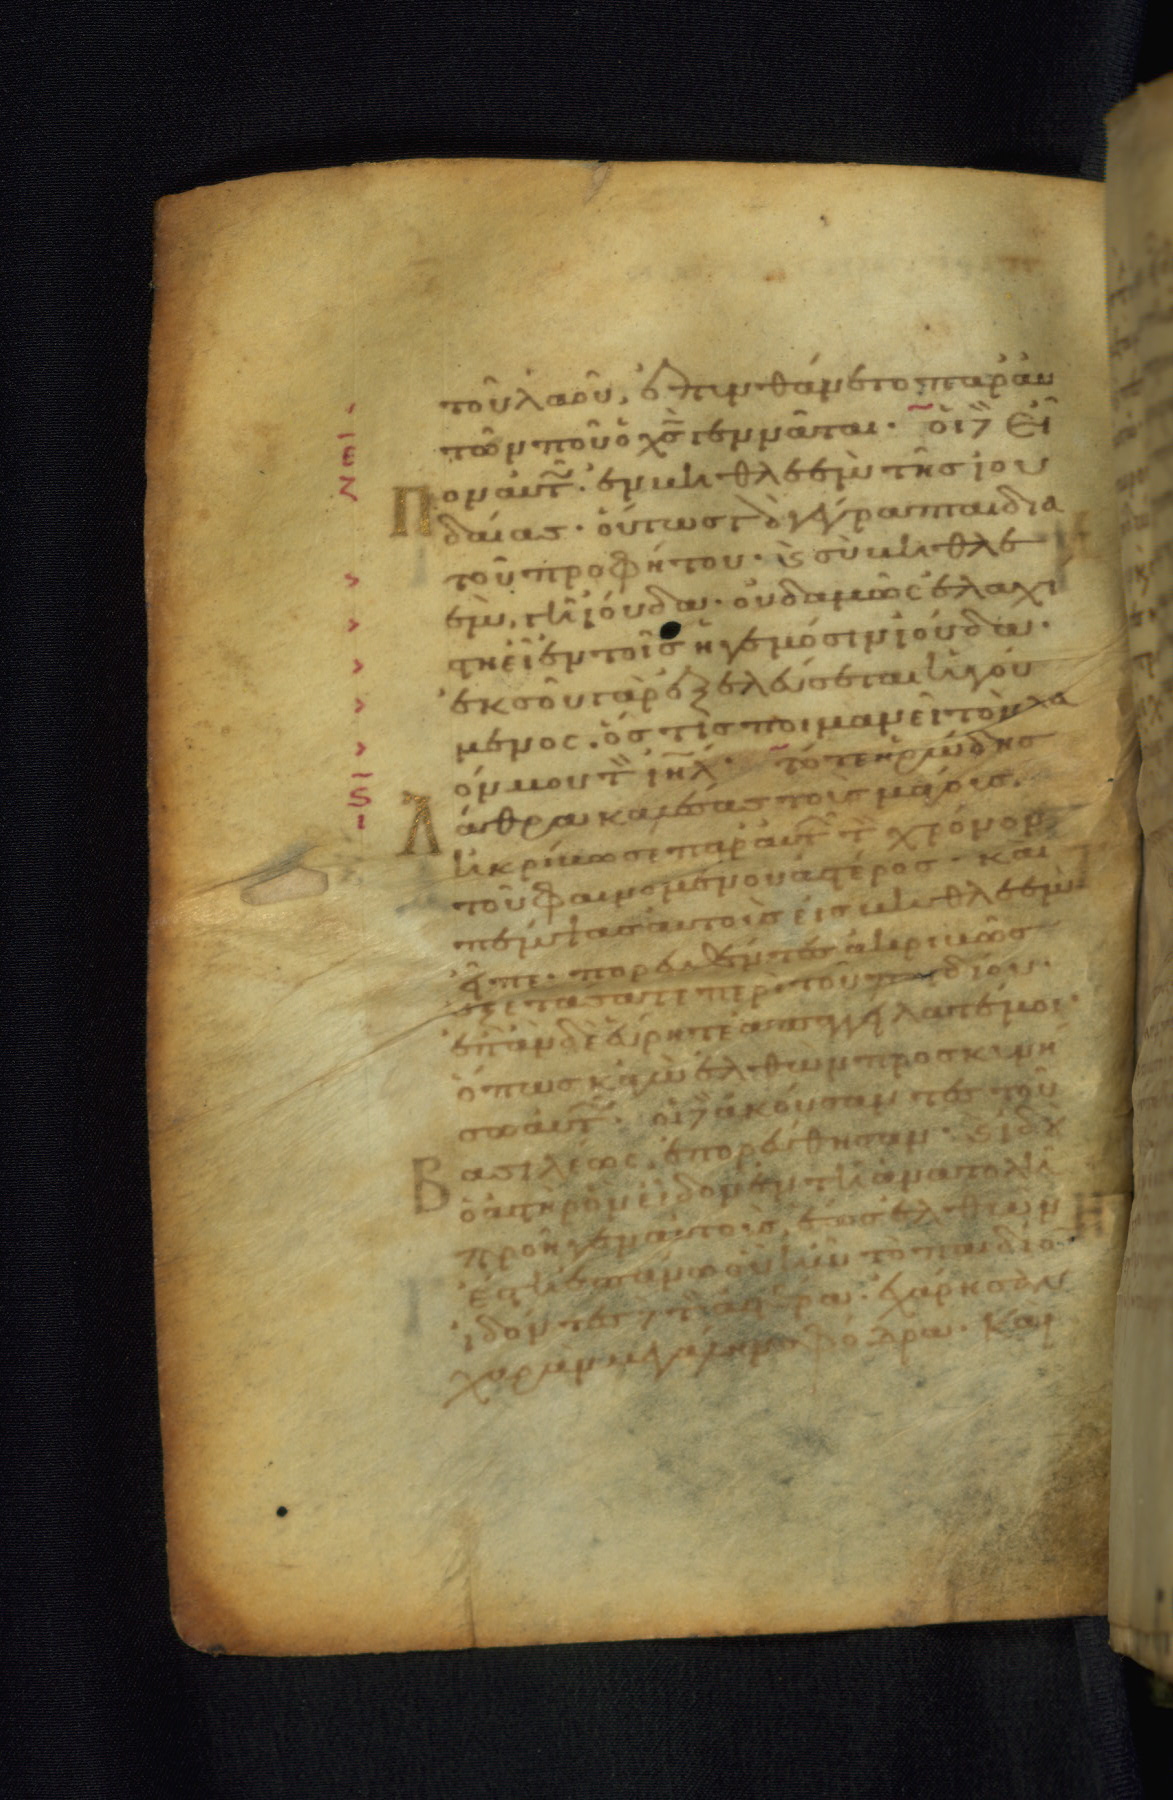 τοῦ λαοῦ, ἐπυνθάνετο παρ' αὐ
τῶν ποῦ ὁ χς γεννᾶται. οἱ δὲ εἶ
Πον αὐτῶ. ἐν βηθλεὲμ τῆς ἰου
δαίας. οὕτως γὰρ γέγραπται διὰ
τοῦ προφήτου. καὶ σὺ βηθλε
ὲμ, γῆ ἰούδα. οὐδαμῶς ἐλαχί
στη εἶ ἐν τοῖς ἡγεμόσιν ἰούδα.
ἐκ σοῦ γὰρ ἐξελεύσεται ἡγού
μενος. ὅστις ποιμανεῖ τὸν λα
όν μου τὸν ιηλ. τότε ἡρώδης
Λάθρα καλέσας τοὺς μάγους.
ἠκρίβωσε παρ' αὐτῶν τὸν χρόνον
τοῦ φαινομένου ἀστέρος. καὶ
πέμψας αὐτοὺς εἰς βηθλεὲμ
εἶπε. πορευθέντες ἀκριβῶς
ἐξετάσατε περὶ τοῦ παιδίου.
ἐπὰν δὲ εὕρητε ἀπαγγείλατέ μοι.
ὅπως κἀγὼ ἐλθὼν προσκυνή
σω αὐτῶ. οἱ δὲ ἀκούσαντες τοῦ
Βασιλέως, ἐπορεύθησαν. καὶ ἰδοὺ
ὁ ἀστὴρ ὃν εἶδον ἐν τῆ ἀνατολῆ
προῆγεν αὐτούς, ἕως ἐλθὼν
ἔστη ἐπάνω οὗ ἦν τὸ παιδίον.
ἰδόντες δὲ τὸν ἀστέρα. ἐχάρησαν
χαρὰν μεγάλην σφόδρα. καὶ